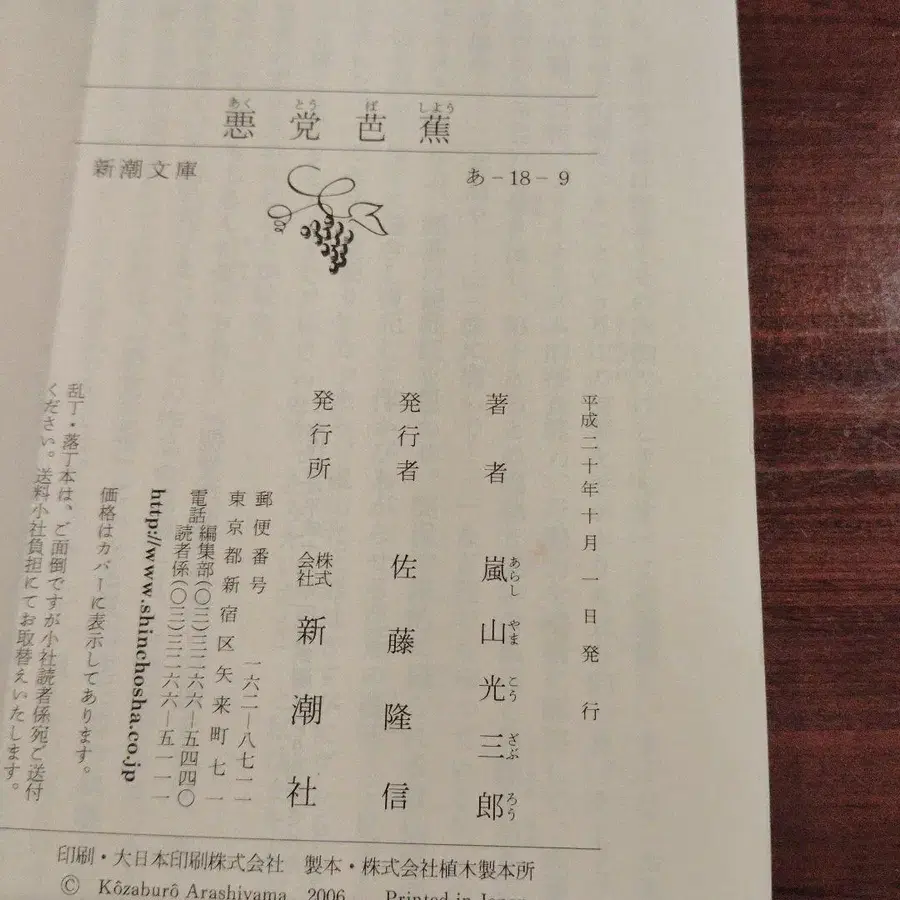 あく とう ば しよう
悪党芭蕉
新潮文庫
あ-18-9
平成二十年十月一日発行
著者 嵐山光三郎
あらし やま こう ざぶ ろう
発行者 佐藤隆信
発行所 株式会社 新潮社
郵便番号 一六二―八七一一
東京都新宿区矢来町七一
電話 編集部(〇三)三二六六―五四四〇
読者係(〇三)三二六六―五一一一
http://www.shinchosha.co.jp
価格はカバーに表示してあります。
乱丁・落丁本は、ご面倒ですが小社読者係宛ご送付
ください。送料小社負担にてお取替えいたします。
印刷・大日本印刷株式会社 製本・株式会社植木製本所
© Kôzaburô Arashiyama 2006 Printed in Japan